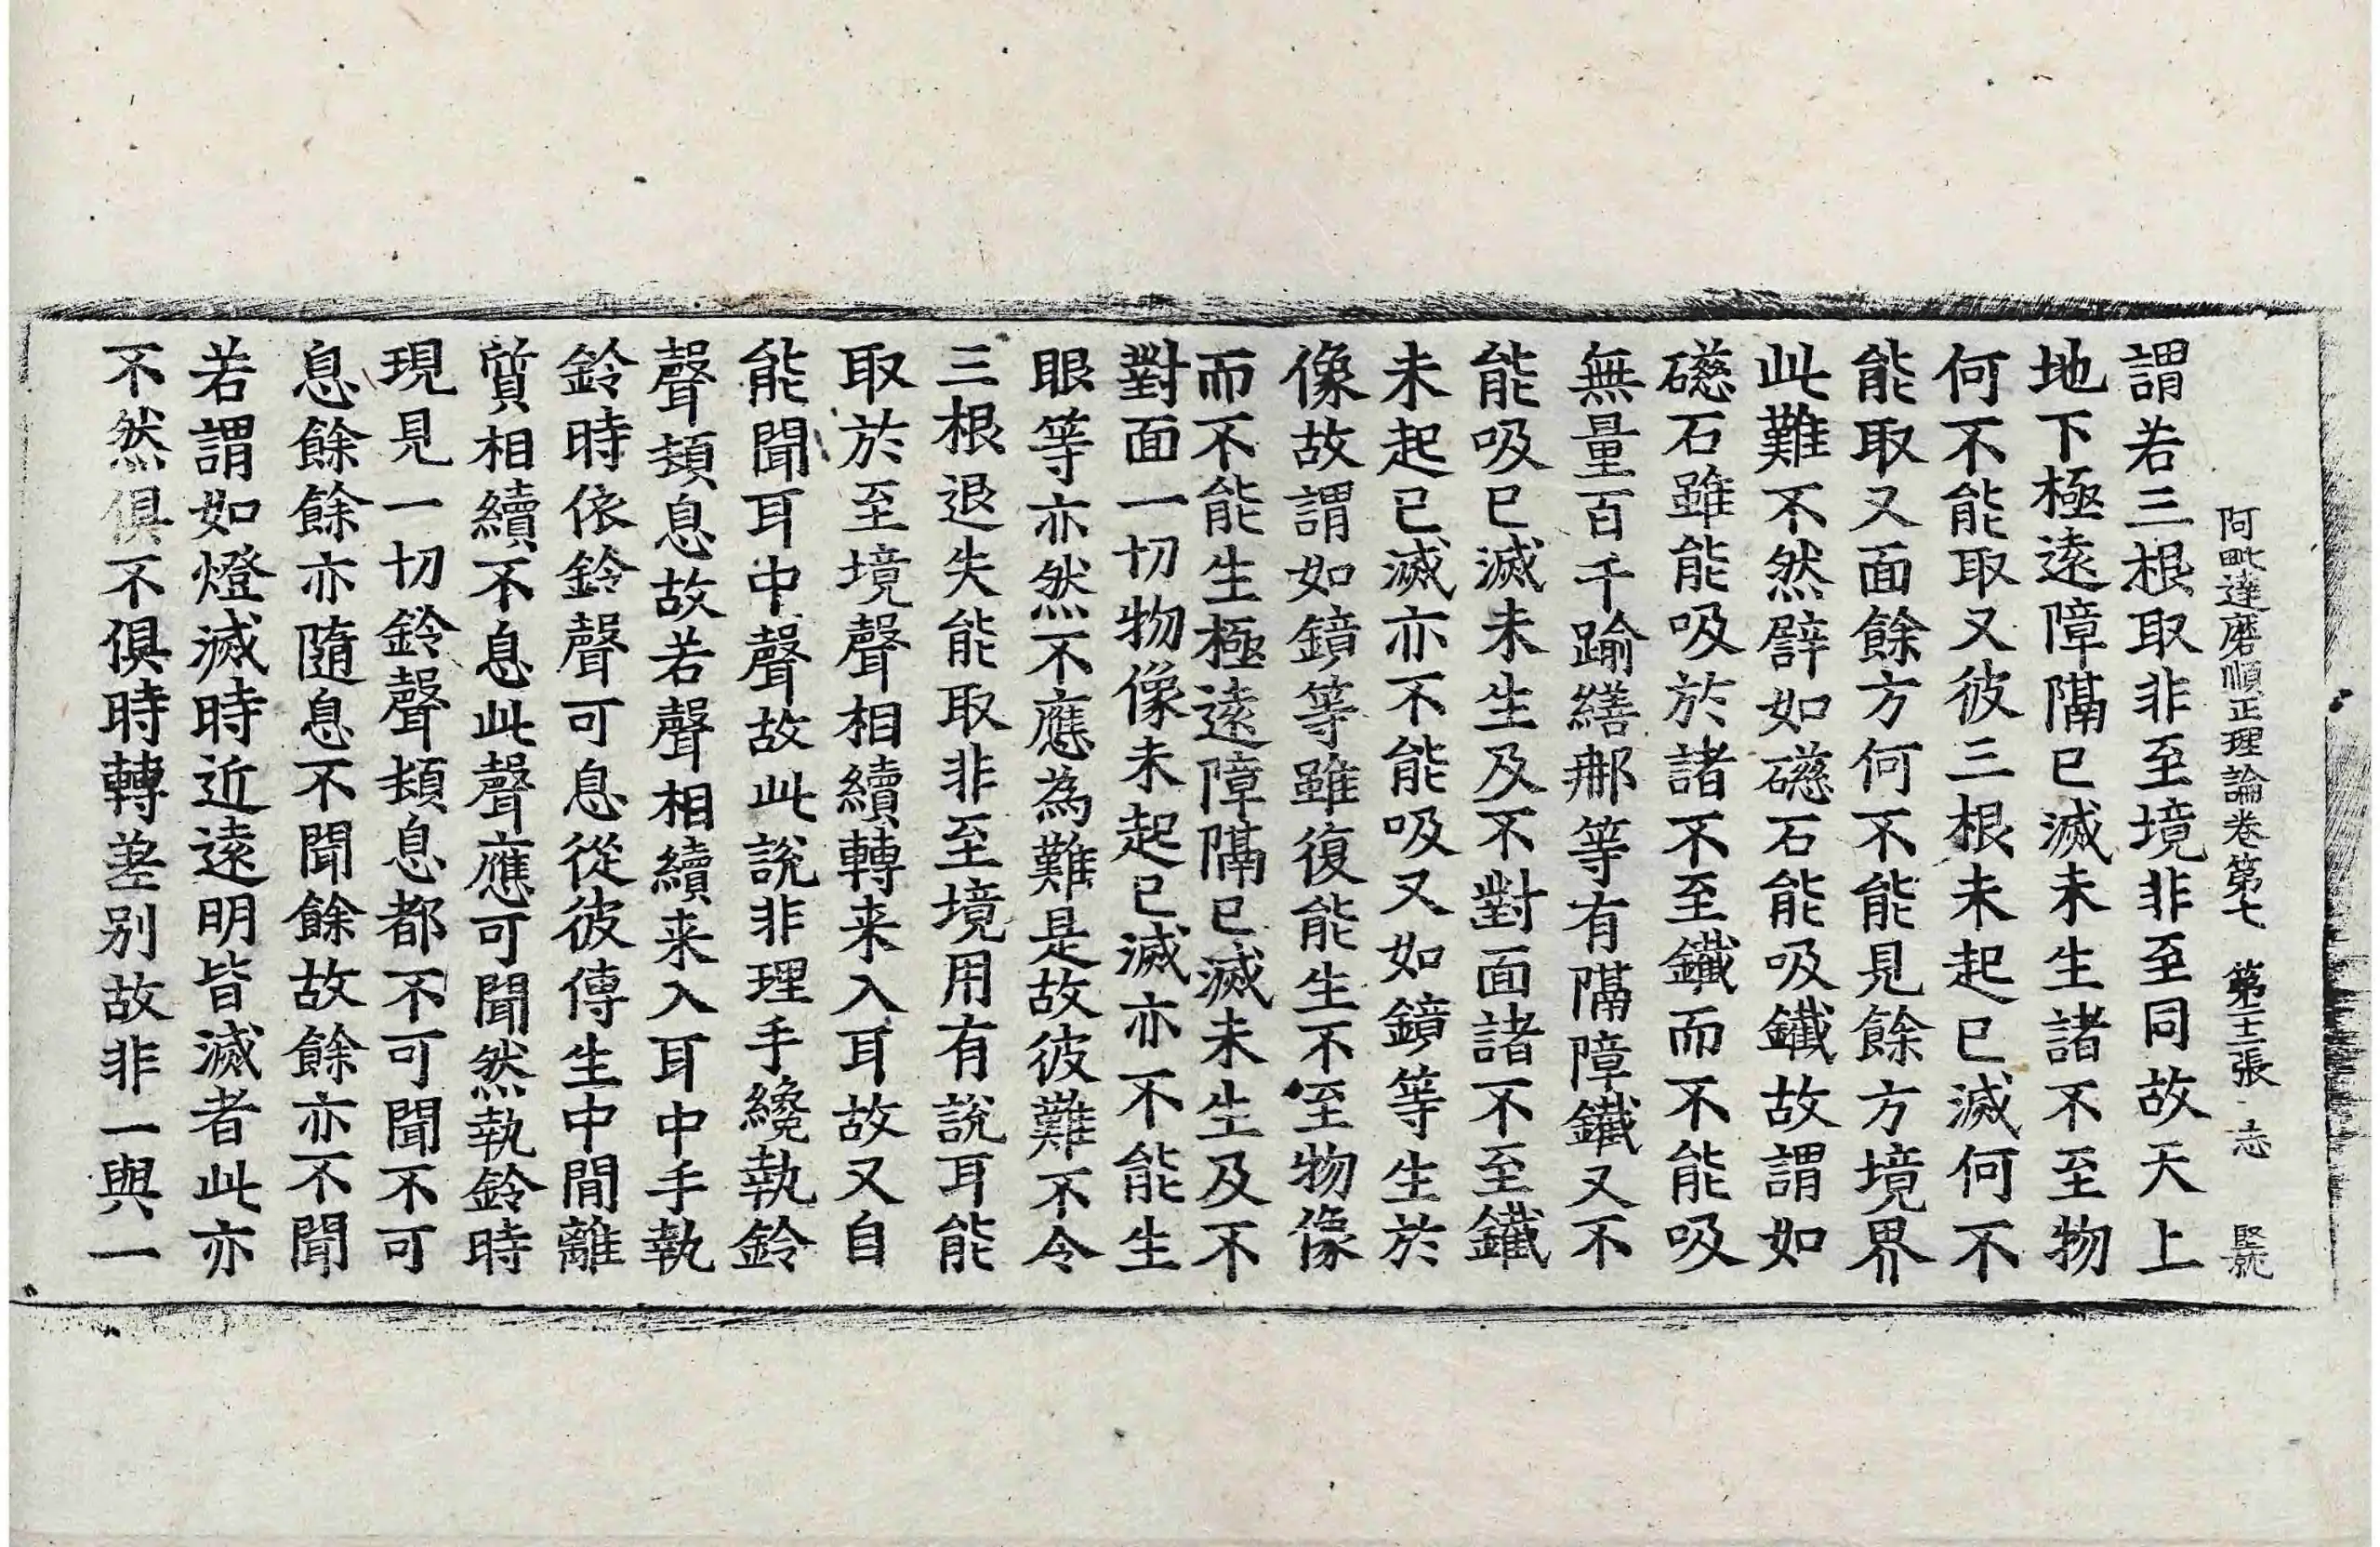 阿毗達磨順正理論卷第七 第十三張 志 堅號
謂若三根取非至境非至同故天上
地下極遠障隔已滅未生諸不至物
何不能取又彼三根未起已滅何不
能取又面餘方何不能見餘方境界
此難不然譬如礠石能吸鐵故謂如
礠石雖能吸於諸不至鐵而不能吸
無量百千踰繕那等有隔障鐵又不
能吸已滅未生及不對面諸不至鐵
未起已滅亦不能吸又如鏡等生於
像故謂如鏡等雖復能生不至物像
而不能生極遠障隔已滅未生及不
對面一切物像未起已滅亦不能生
眼等亦然不應為難是故彼難不令
三根退失能取非至境用有說耳能
取於至境聲相續轉来入耳故又自
能聞耳中聲故此說非理手纔執鈴
聲頓息故若聲相續来入耳中手執
鈴時依鈴聲可息從彼傳生中間離
質相續不息此聲應可聞然執鈴時
現見一切鈴聲頓息都不可聞不可
息餘餘亦隨息不聞餘故餘亦不聞
若謂如燈滅時近遠明皆滅者此亦
不然俱不俱時轉差别故非一與一